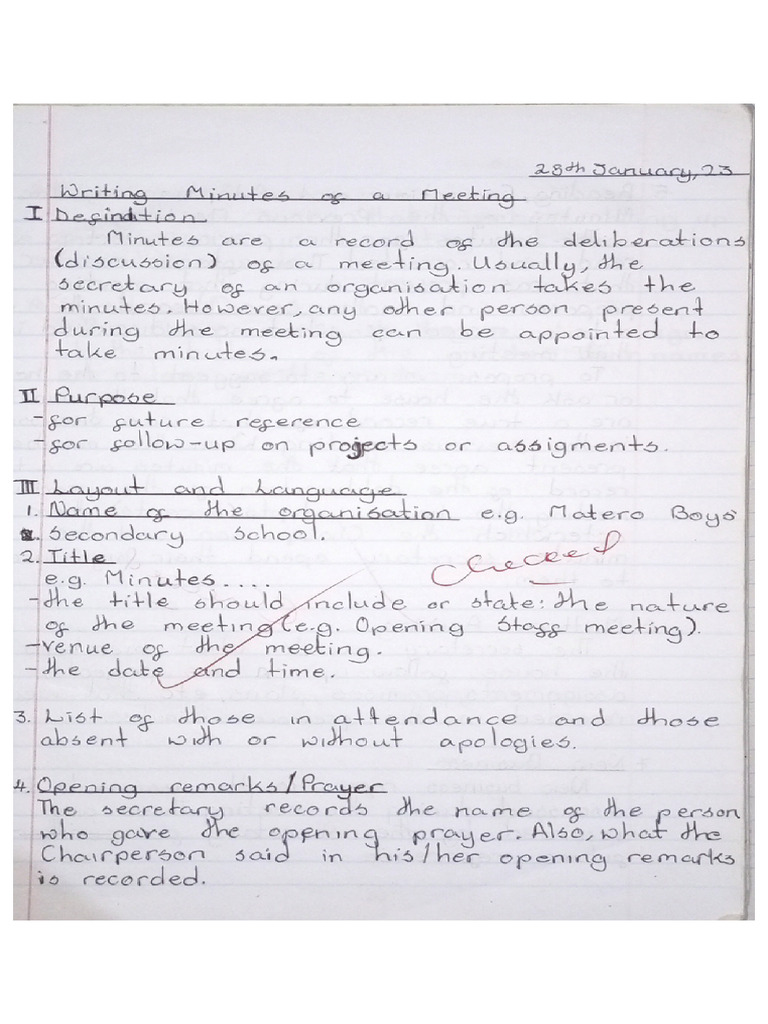 28th January, 23
Writing Minutes of a Meeting
I Definition
Minutes are a record of the deliberations
(discussion) of a meeting. Usually, the
secretary of an organisation takes the
minutes. However, any other person present
during the meeting can be appointed to
take minutes.
II Purpose
-for future reference
-for follow-up on projects or assigments.
III Layout and Language
1. Name of the organisation e.g. Matero Boys'
Secondary School.
2. Title
Checked
e.g. Minutes....
-the title should include or state: the nature
of the meeting (e.g. Opening Staff meeting).
-venue of the meeting.
-the date and time.
3. List of those in attendance and those
absent with or without apologies.
4. Opening remarks/Prayer
The secretary records the name of the person
who gave the opening prayer. Also, what the
Chairperson said in his/her opening remarks
is recorded.